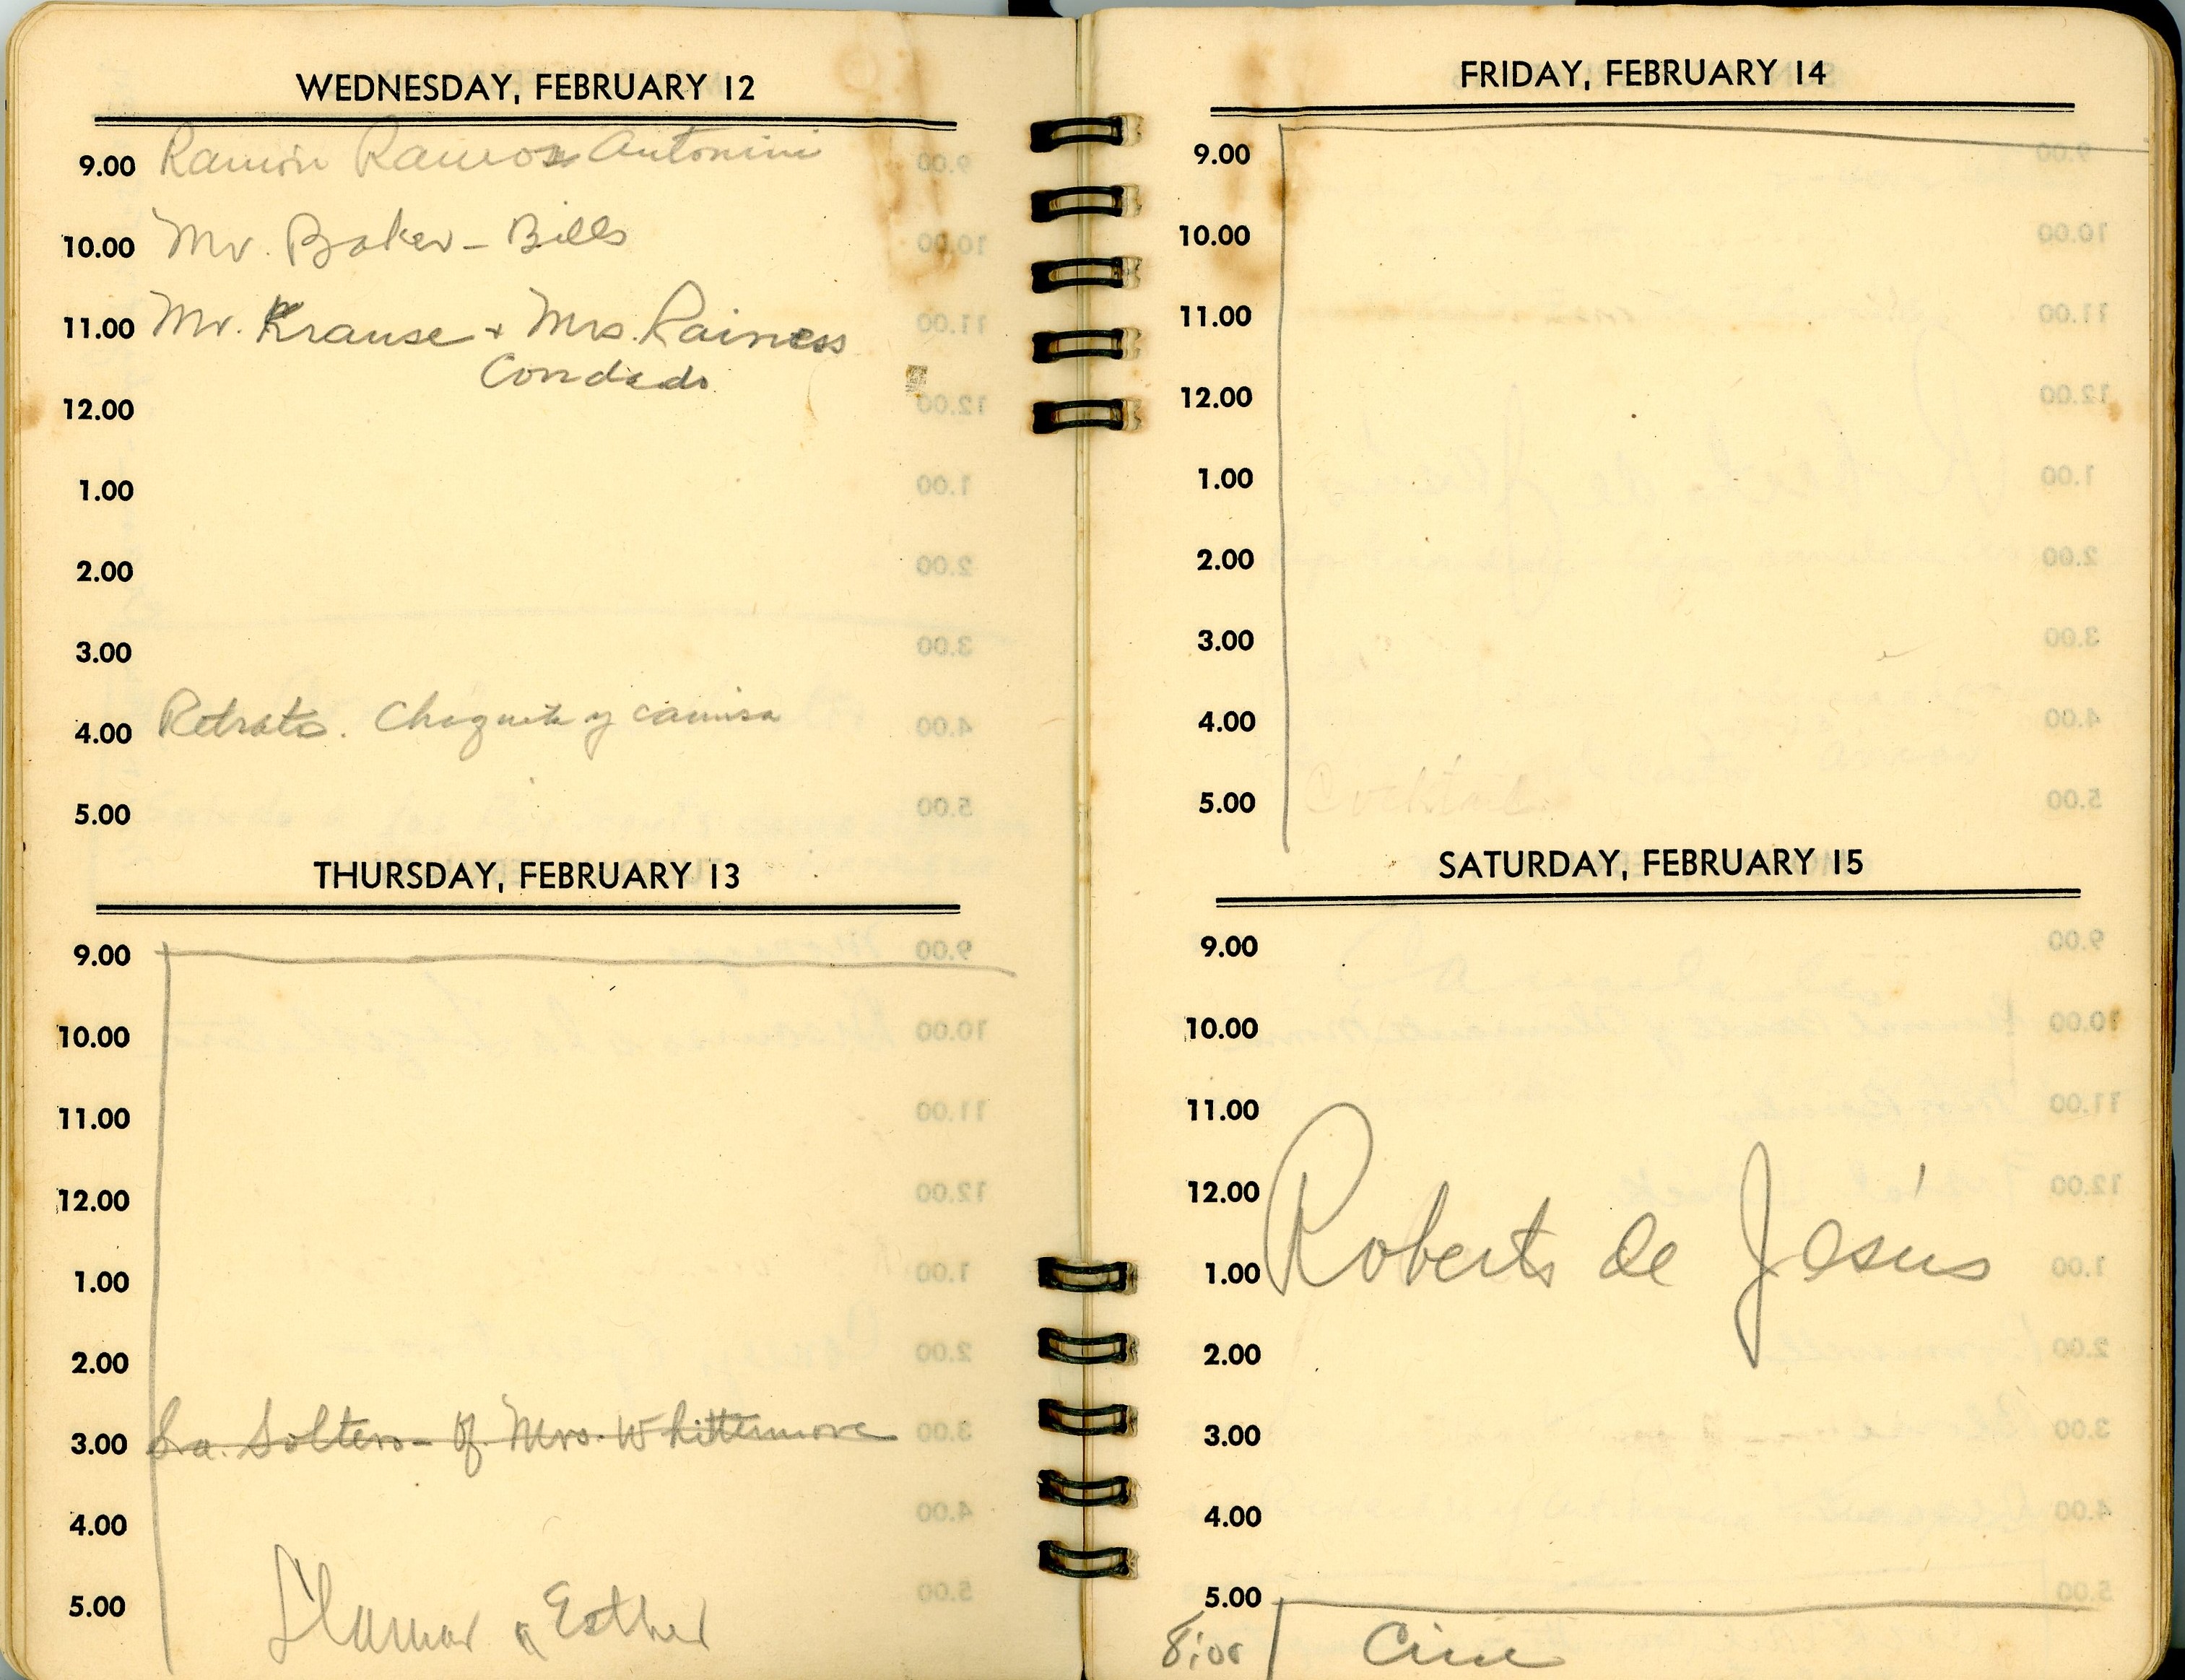 WEDNESDAY, FEBRUARY 12
9.00 Ramón Ramos Antonini
10.00 Mr. Baker - Bills
11.00 Mr. Krause + Mrs. Rainess
Condado
12.00
1.00
2.00
3.00
4.00 Retrato. Chaqueta y camisa
5.00
THURSDAY, FEBRUARY 13
9.00
10.00
11.00
12.00
1.00
2.00
3.00 Sa. Soltero - Of. Mrs. Whittemore
4.00
5.00 Llamar a Esther
FRIDAY, FEBRUARY 14
9.00
10.00
11.00
12.00
1.00
2.00
3.00
4.00
5.00 Cocktail
SATURDAY, FEBRUARY 15
9.00
10.00
11.00
12.00
1.00 Roberto de Jesús
2.00
3.00
4.00
5.00
8:00 Cine